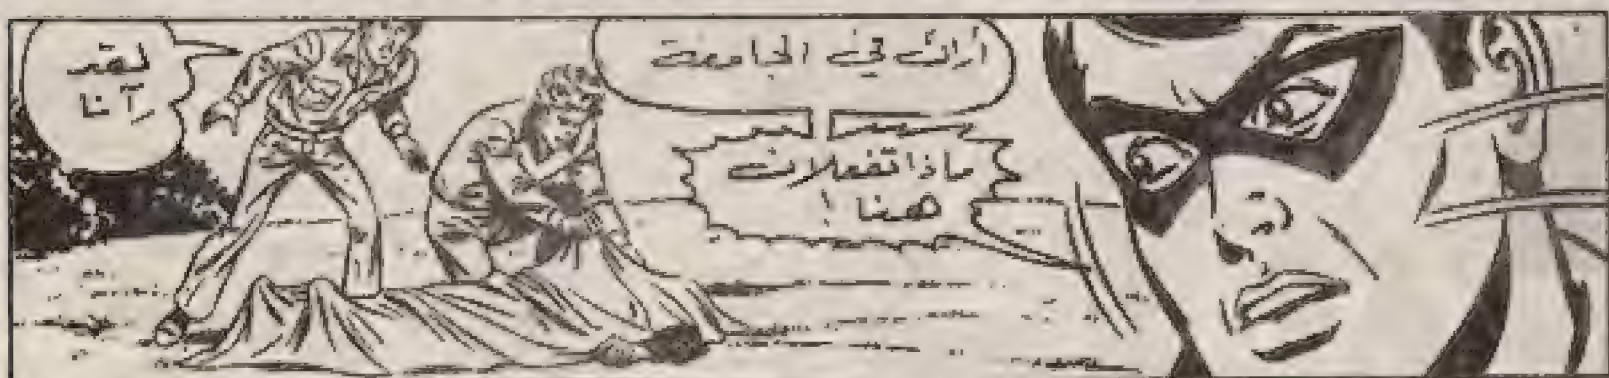 أراك في الجامعة
ماذا تفعلان
هنا !
لقد
رآنا